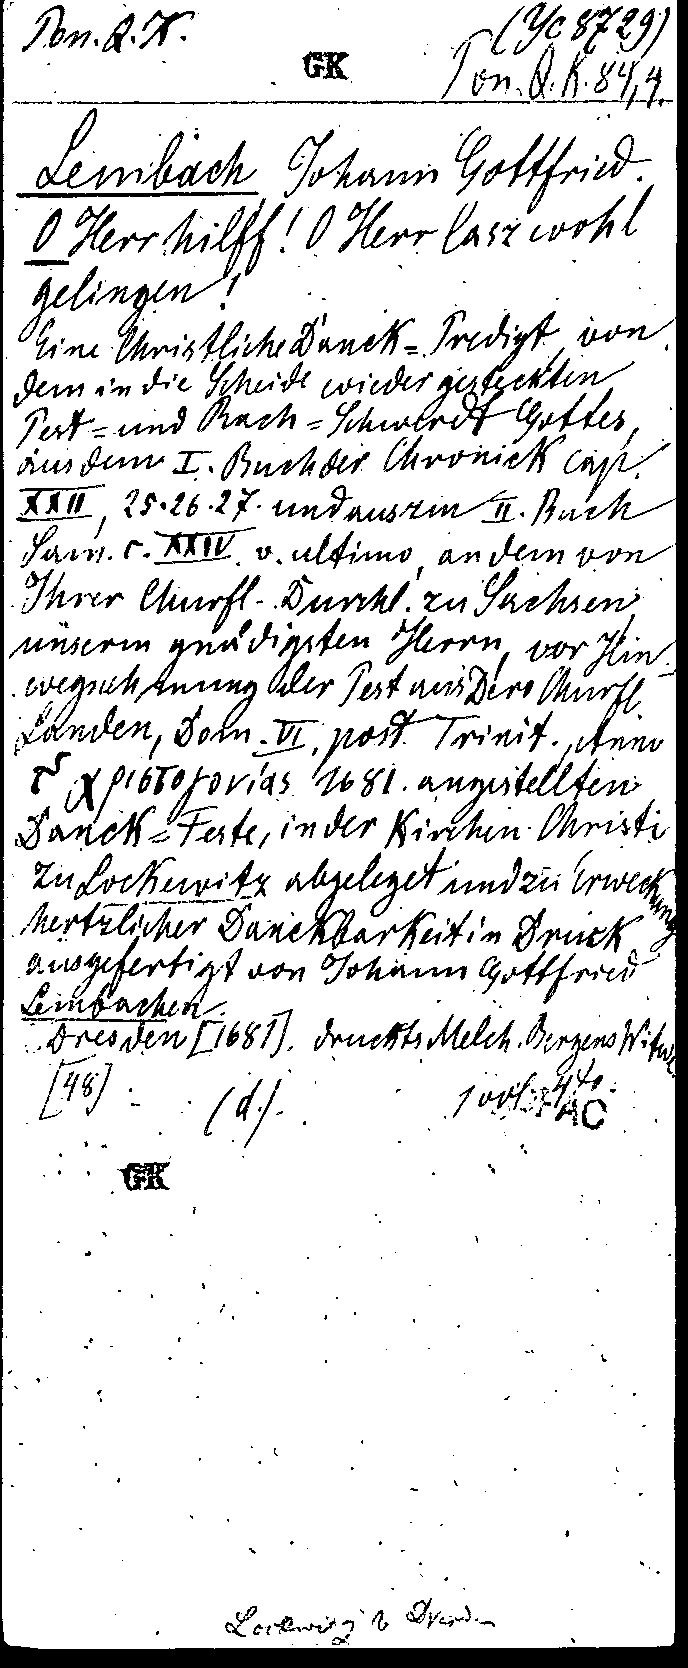 Pon. Q. K. (Yc 8729)
GK
Pon. Q. K. 84,4.
Lembach Johann Gottfried.
O Herr hilff! O Herr lasz wohl
gelingen!
Eine Christliche Danck=Predigt von
dem in die Scheide wieder gesteckten
Pest=und Rach=Schwerdt Gottes,
aus dem I. Buch der Chronick cap.
XXII, 25.26.27. und aus zm II. Buch
Sam. c. XXIV. v. ultimo, an dem von
Ihrer Churfl. Durchl. zu Sachsen,
unserm gnädigsten Herrn, vor Hin-
wegnehmung der Pest aus Dero Churfl.
Landen, Dom. VI, post Trinit., Anno
χριστογονίας 1681. angestellten
Danck=Feste, in der Kirchen Christi
zu Lockewitz abgeleget und zu Erweckung
hertzlicher Danckbarkeit in Druck
ausgefertigt von Johann Gottfried
Lembachen.
Dresden [1681]. druckts Melch. Bergens Witwe
[48] (d.) 4to.
AC
GK
Lockwitz b Dresden